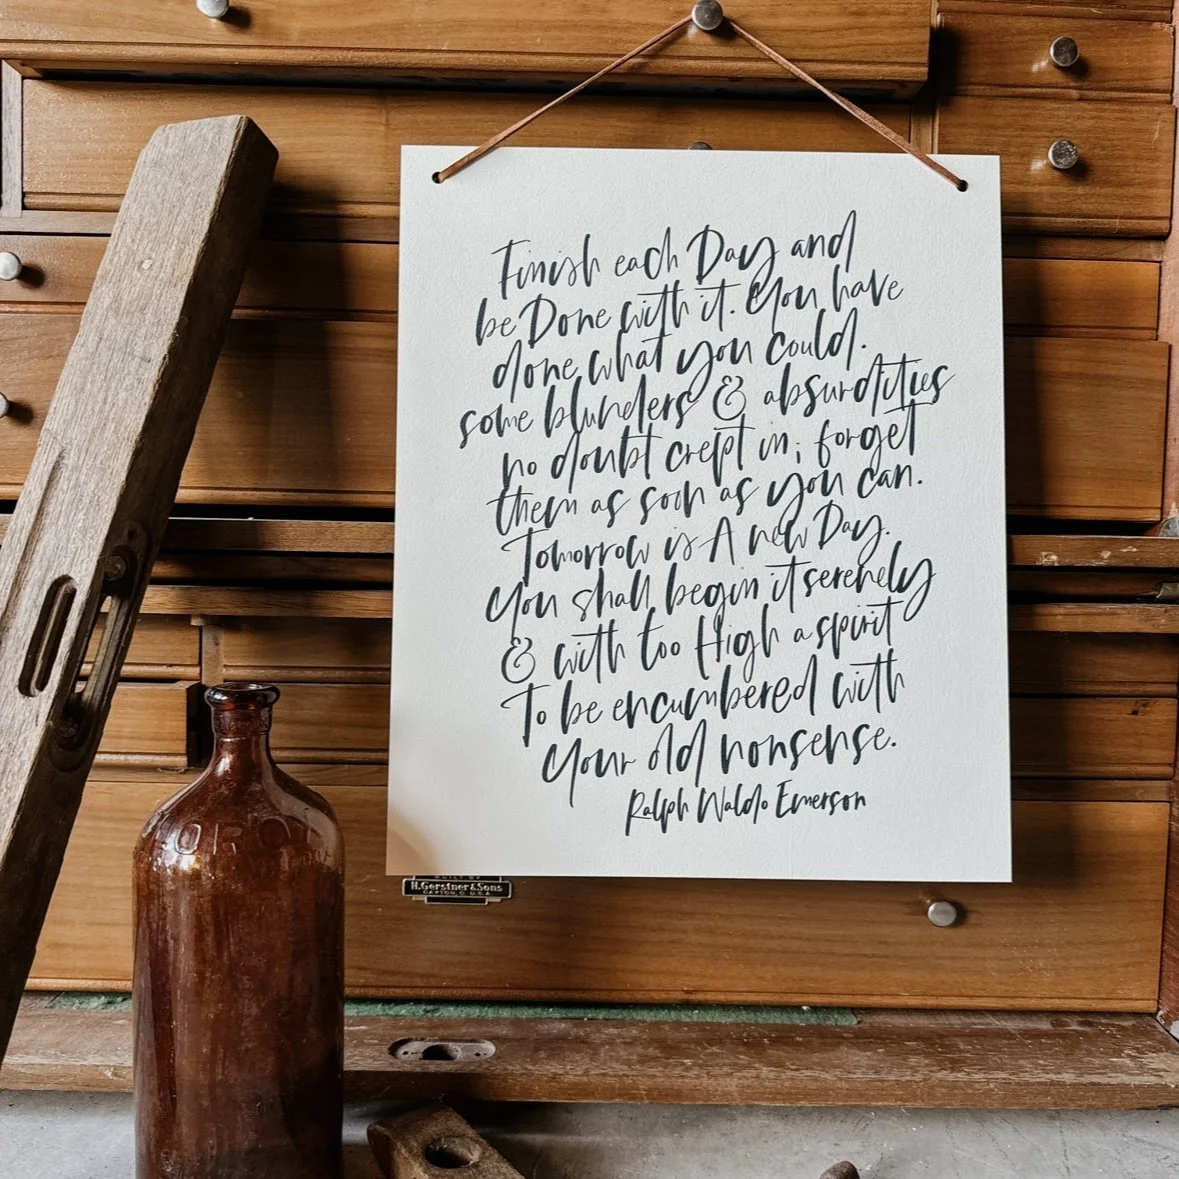 Finish each Day and
be Done with it. You have
done what you could.
some blunders & absurdities
no doubt crept in; forget
them as soon as you can.
Tomorrow is A new Day.
You shall begin it serenely
& with too High a spirit
To be encumbered with
your old nonsense.
Ralph Waldo Emerson
BUILT BY
H. Gerstner & Sons
DAYTON, O. U.S.A.